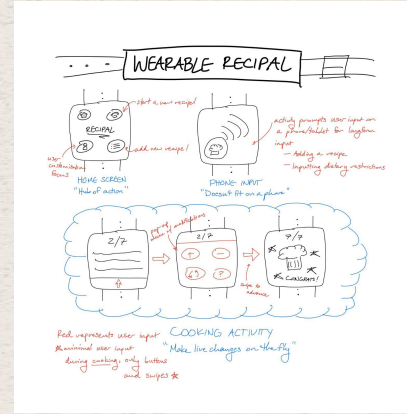 WEARABLE RECIPAL
start a new recipe!
RECIPAL
add new recipe!
user
customization
focus
HOME SCREEN
"Hub of action"
PHONE INPUT
"Doesn't fit on a phone"
activity prompts user input on
a phone/tablet for longform
input
- Adding a recipe
- Inputting dietary restrictions
2/7
pop-up
menu of modifications
2/7
swipe to
advance
7/7
CONGRATS!
Red represents user input
minimal user input
during cooking, only buttons
and swipes
COOKING ACTIVITY
"Make live changes on the fly"